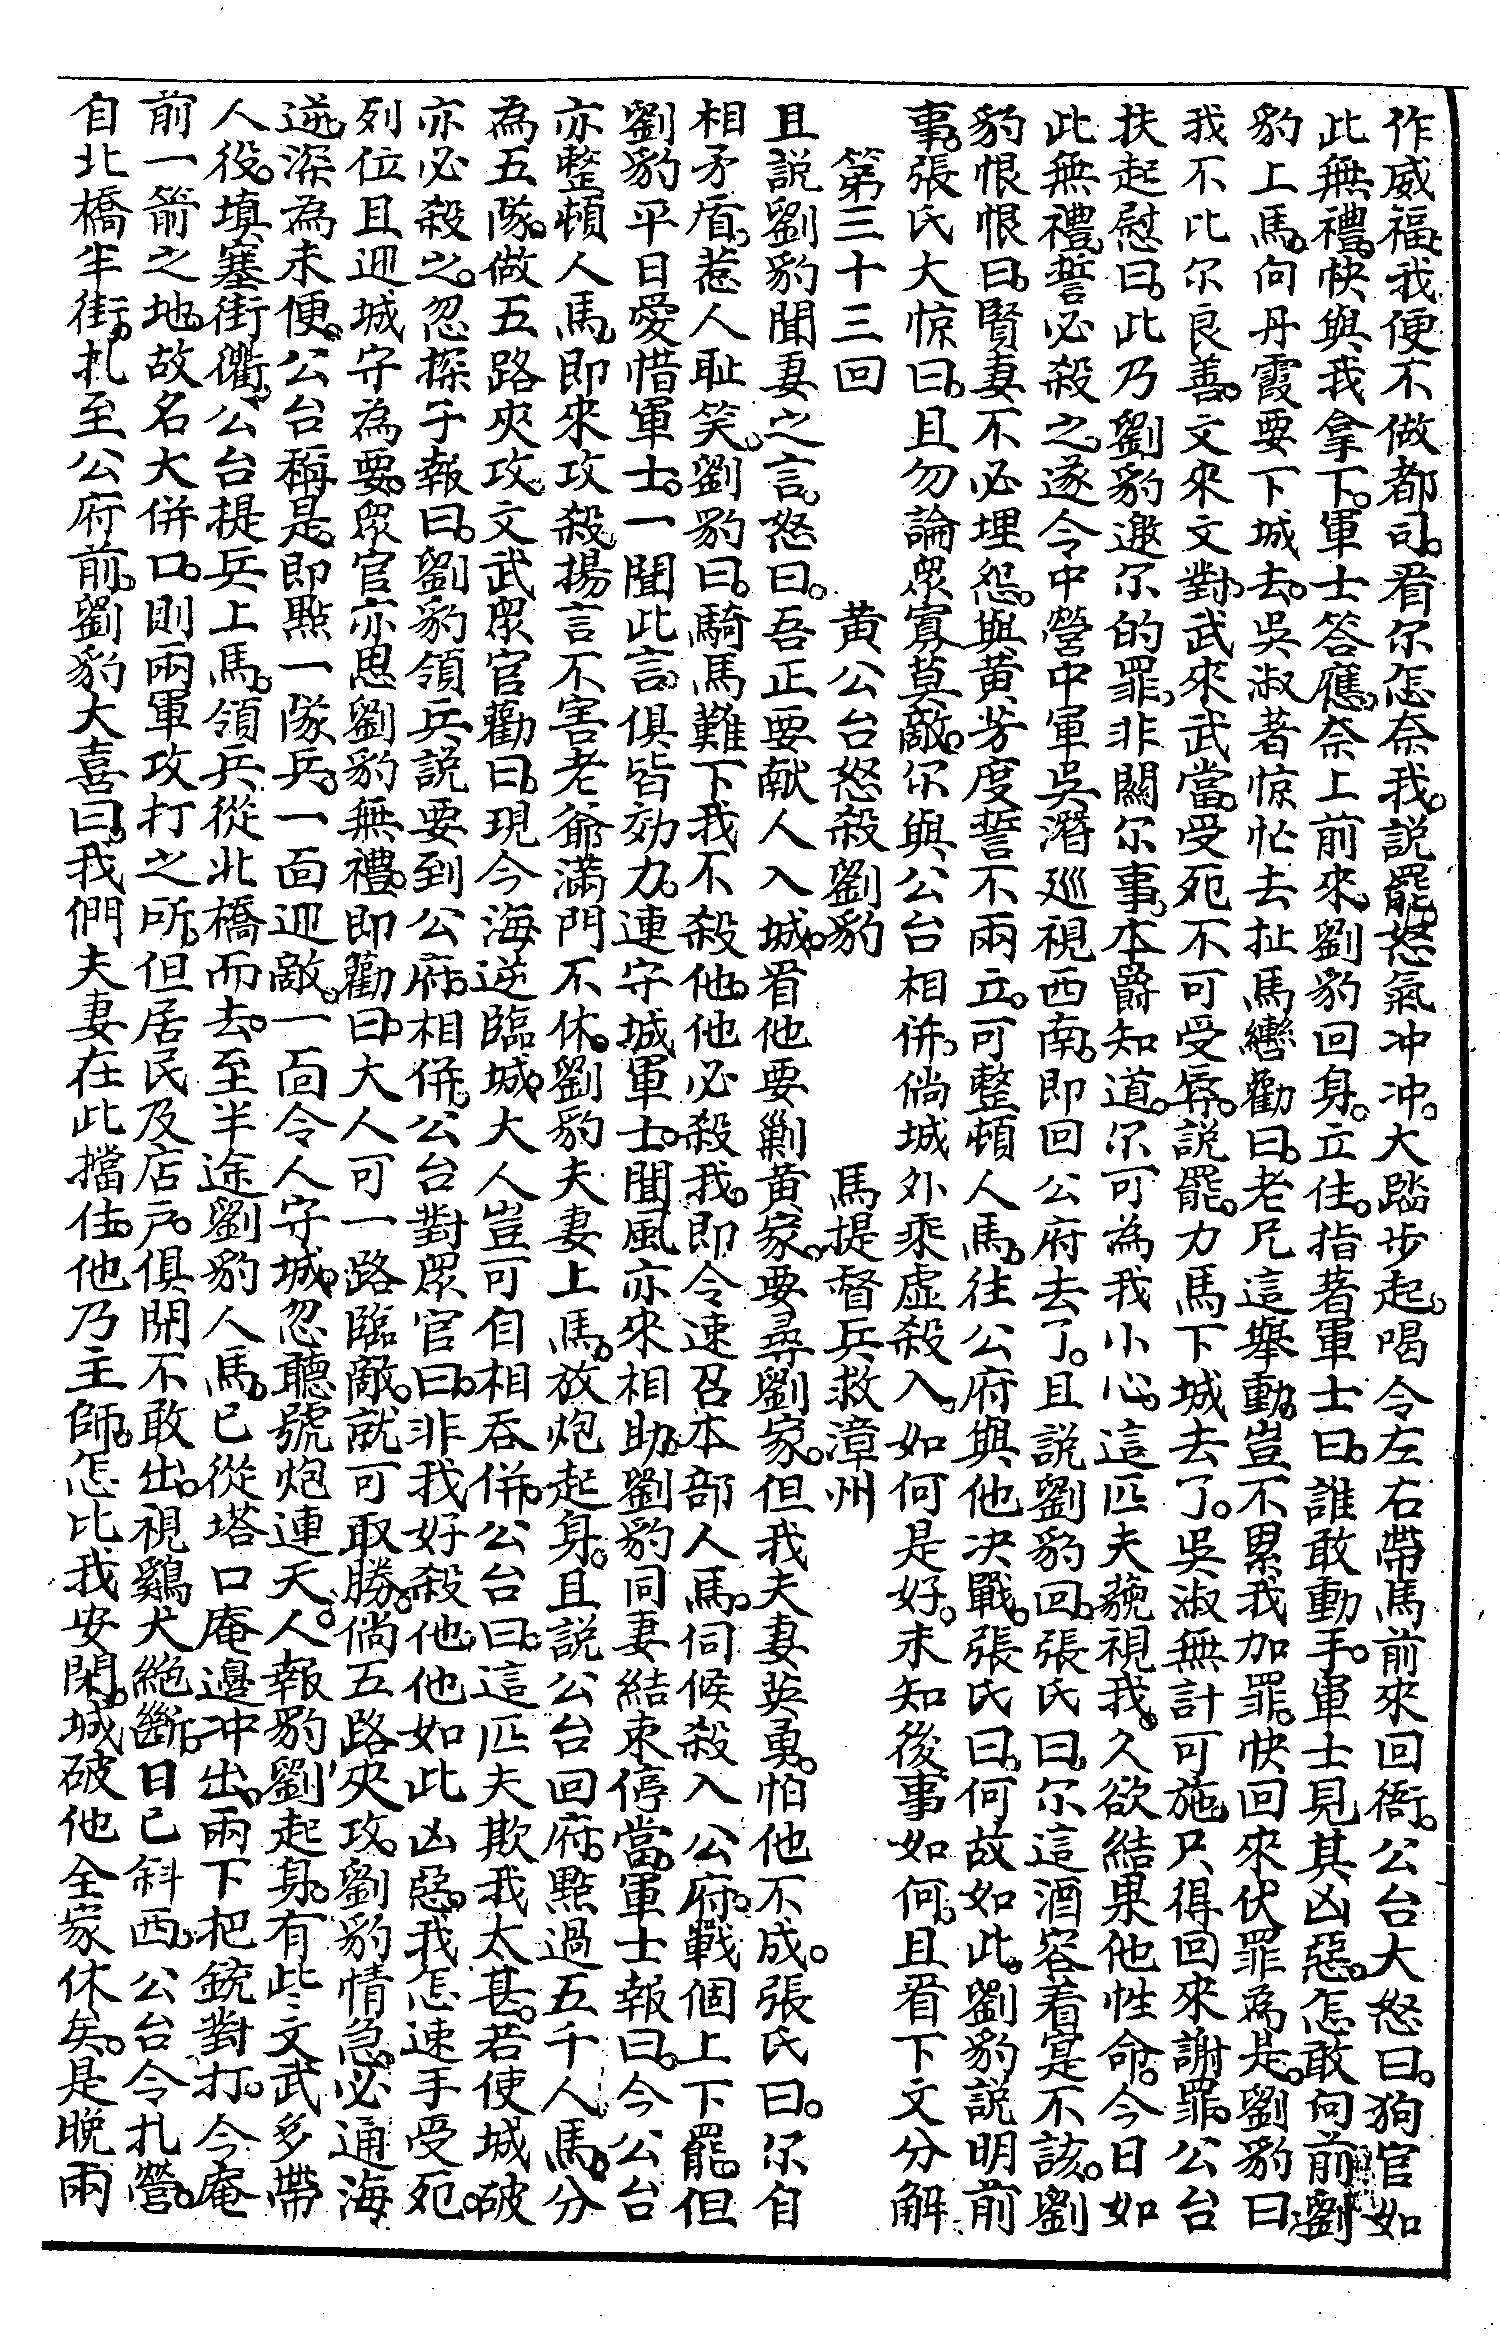 作威福。我便不做都司。看尔怎奈我。說罷。怒氣冲冲。大踏步起。喝令左右帶馬前來回衙。公台大怒曰。狗官如
此無禮。快與我拿下。軍士答應。奈上前來。劉豹回身。立住。指著軍士曰。誰敢動手。軍士見其凶惡。怎敢向前。劉
豹上馬。向丹霞要下城去。吳淑著惊忙去扯馬轡勸曰。老兄這舉動。豈不累我加罪。快回來伏罪為是。劉豹曰
我不比尔良善。文來文對。武來武當。受死不可受辱。說罷。力馬下城去了。吳淑無計可施。只得回來謝罪。公台
扶起慰曰。此乃劉豹邀尔的罪。非關尔事。本爵知道。尔可為我小心。這匹夫藐視我。久欲結果他性命。今日如
此無禮。誓必殺之。遂令中營中軍吳潛廵視西南。即回公府去了。且説劉豹回。張氏曰。尔這酒容着寔不該。劉
豹恨恨曰。賢妻不必埋怨。與黄芳度誓不兩立。可整頓人馬。往公府與他决戰。張氏曰。何故如此。劉豹説明前
事。張氏大惊曰。且勿論眾寡莫敵。尔與公台相併。倘城外乘虚殺入。如何是好。未知後事如何。且看下文分解
第三十三回　黄公台怒殺劉豹　馬提督兵救漳州
且説劉豹聞妻之言。怒曰。吾正要献人入城。看他要剿黄家。要尋劉家。但我夫妻英勇。怕他不成。張氏曰。尔自
相矛盾。惹人耻笑。劉豹曰。騎馬難下。我不殺他。他必殺我。即令速召本部人馬。伺候殺入公府。戰個上下罷。但
劉豹平日愛惜軍士。一聞此言。俱皆効力。連守城軍士。聞風亦來相助。劉豹同妻結束停當。軍士報曰。今公台
亦整頓人馬。即來攻殺。揚言不害老爺滿門不休。劉豹夫妻上馬。放炮起身。且説公台回府。點過五千人馬。分
為五隊。做五路夾攻。文武眾官勸曰。現今海逆臨城。大人豈可自相吞併。公台曰。這匹夫欺我太甚。若使城破
亦必殺之。忽探子報曰。劉豹領兵説要到公府。相併。公台對眾官曰。非我好殺他。他如此凶惡。我怎速手受死。
列位且迎城守為要。眾官亦思劉豹無禮。即勸曰。大人可一路臨敵。就可取勝。倘五路夾攻。劉豹情急。必通海
逆。深為未便。公台稱是。即點一隊兵。一面迎敵。一面令人守城。忽聽號炮連天。人報豹劉起身。有些〻文武多帶
人役。填塞街衢。公台提兵上馬。領兵從北橋而去。至半途劉豹人馬。已從塔口庵邊冲出。兩下把銃對打。今庵
前一箭之地。故名大併口。則兩軍攻打之所。但居民及店戶。俱閉不敢出。視鷄犬絶斷。日已斜西。公台令扎營。
自北橋半街。扎至公府前。劉豹大喜曰。我們夫妻在此擋住。他乃主師。怎比我安閑。城破他全家休矣。是晚兩